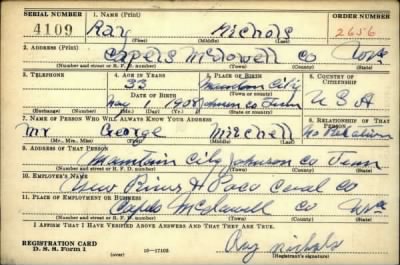 SERIAL NUMBER 1. NAME (Print) ORDER NUMBER
4109 Ray Nichols 2656
(First) (Middle) (Last)
2. ADDRESS (Print)
McDowell Co W Va
(Number and street or R. F. D. number) (Town) (County) (State)
3. TELEPHONE 4. AGE IN YEARS 5. PLACE OF BIRTH 6. COUNTRY OF CITIZENSHIP
33 Mountain City
DATE OF BIRTH (Town or county)
Nov 1 1908 Johnson Co Tenn U S A
(Exchange) (Number) (Mo.) (Day) (Yr.) (State or country)
7. NAME OF PERSON WHO WILL ALWAYS KNOW YOUR ADDRESS 8. RELATIONSHIP OF THAT PERSON
Mr George Mitchell No Relation
(Mr., Mrs., Miss) (First) (Middle) (Last)
9. ADDRESS OF THAT PERSON
Mountain City Johnson Co Tenn
(Number and street or R. F. D. number) (Town) (County) (State)
10. EMPLOYER'S NAME
New River & Poco Coal Co
11. PLACE OF EMPLOYMENT OR BUSINESS
McDowell Co W Va
(Number and street or R. F. D. number) (Town) (County) (State)
I AFFIRM THAT I HAVE VERIFIED ABOVE ANSWERS AND THAT THEY ARE TRUE.
REGISTRATION CARD
D. S. S. Form 1 (over) 16-17105 Ray Nichols
(Registrant's signature)